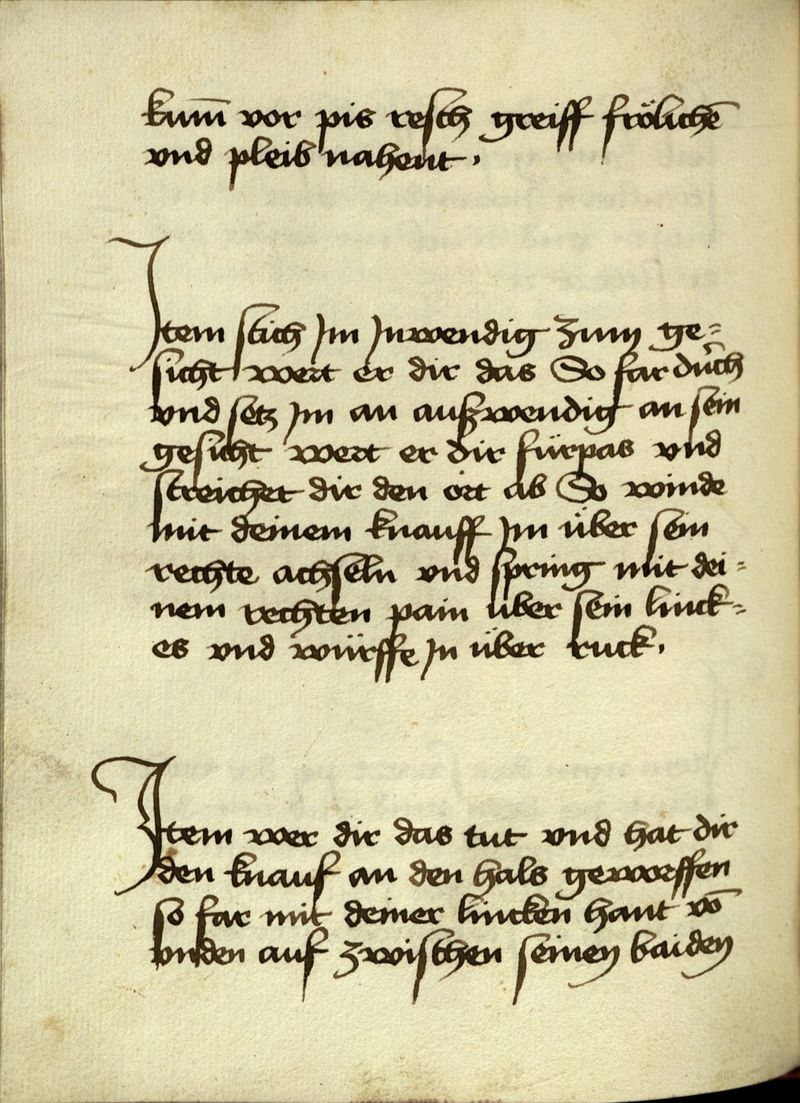 kum̅ vor pis resch greiff frölichē
vnd pleib nahent .
Item stich Im Inwendig zum ge=
sicht wert er dir das So far durch
vnd setz Im an außwendig an sein
gesicht wert er dir fürpas vnd
streichet dir den ort ab So winde
mit deinem knauff Im über sein
rechte achseln vnd spring mit dei=
nem rechten pain über sein linck=
es vnd würffe In über ruck .
Item wer dir das tut vnd hat dir
den knauf an den hals geworffen
so far mit deiner lincken hant vō
vnden auf zwischen seinen baiden